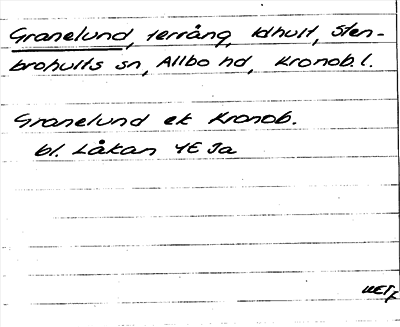 Granelund, terräng, Idhult, Sten-
brohults sn, Allbo hd, Kronob. l.
Granelund ek Kronob.
bl. Låkan 4E Ja